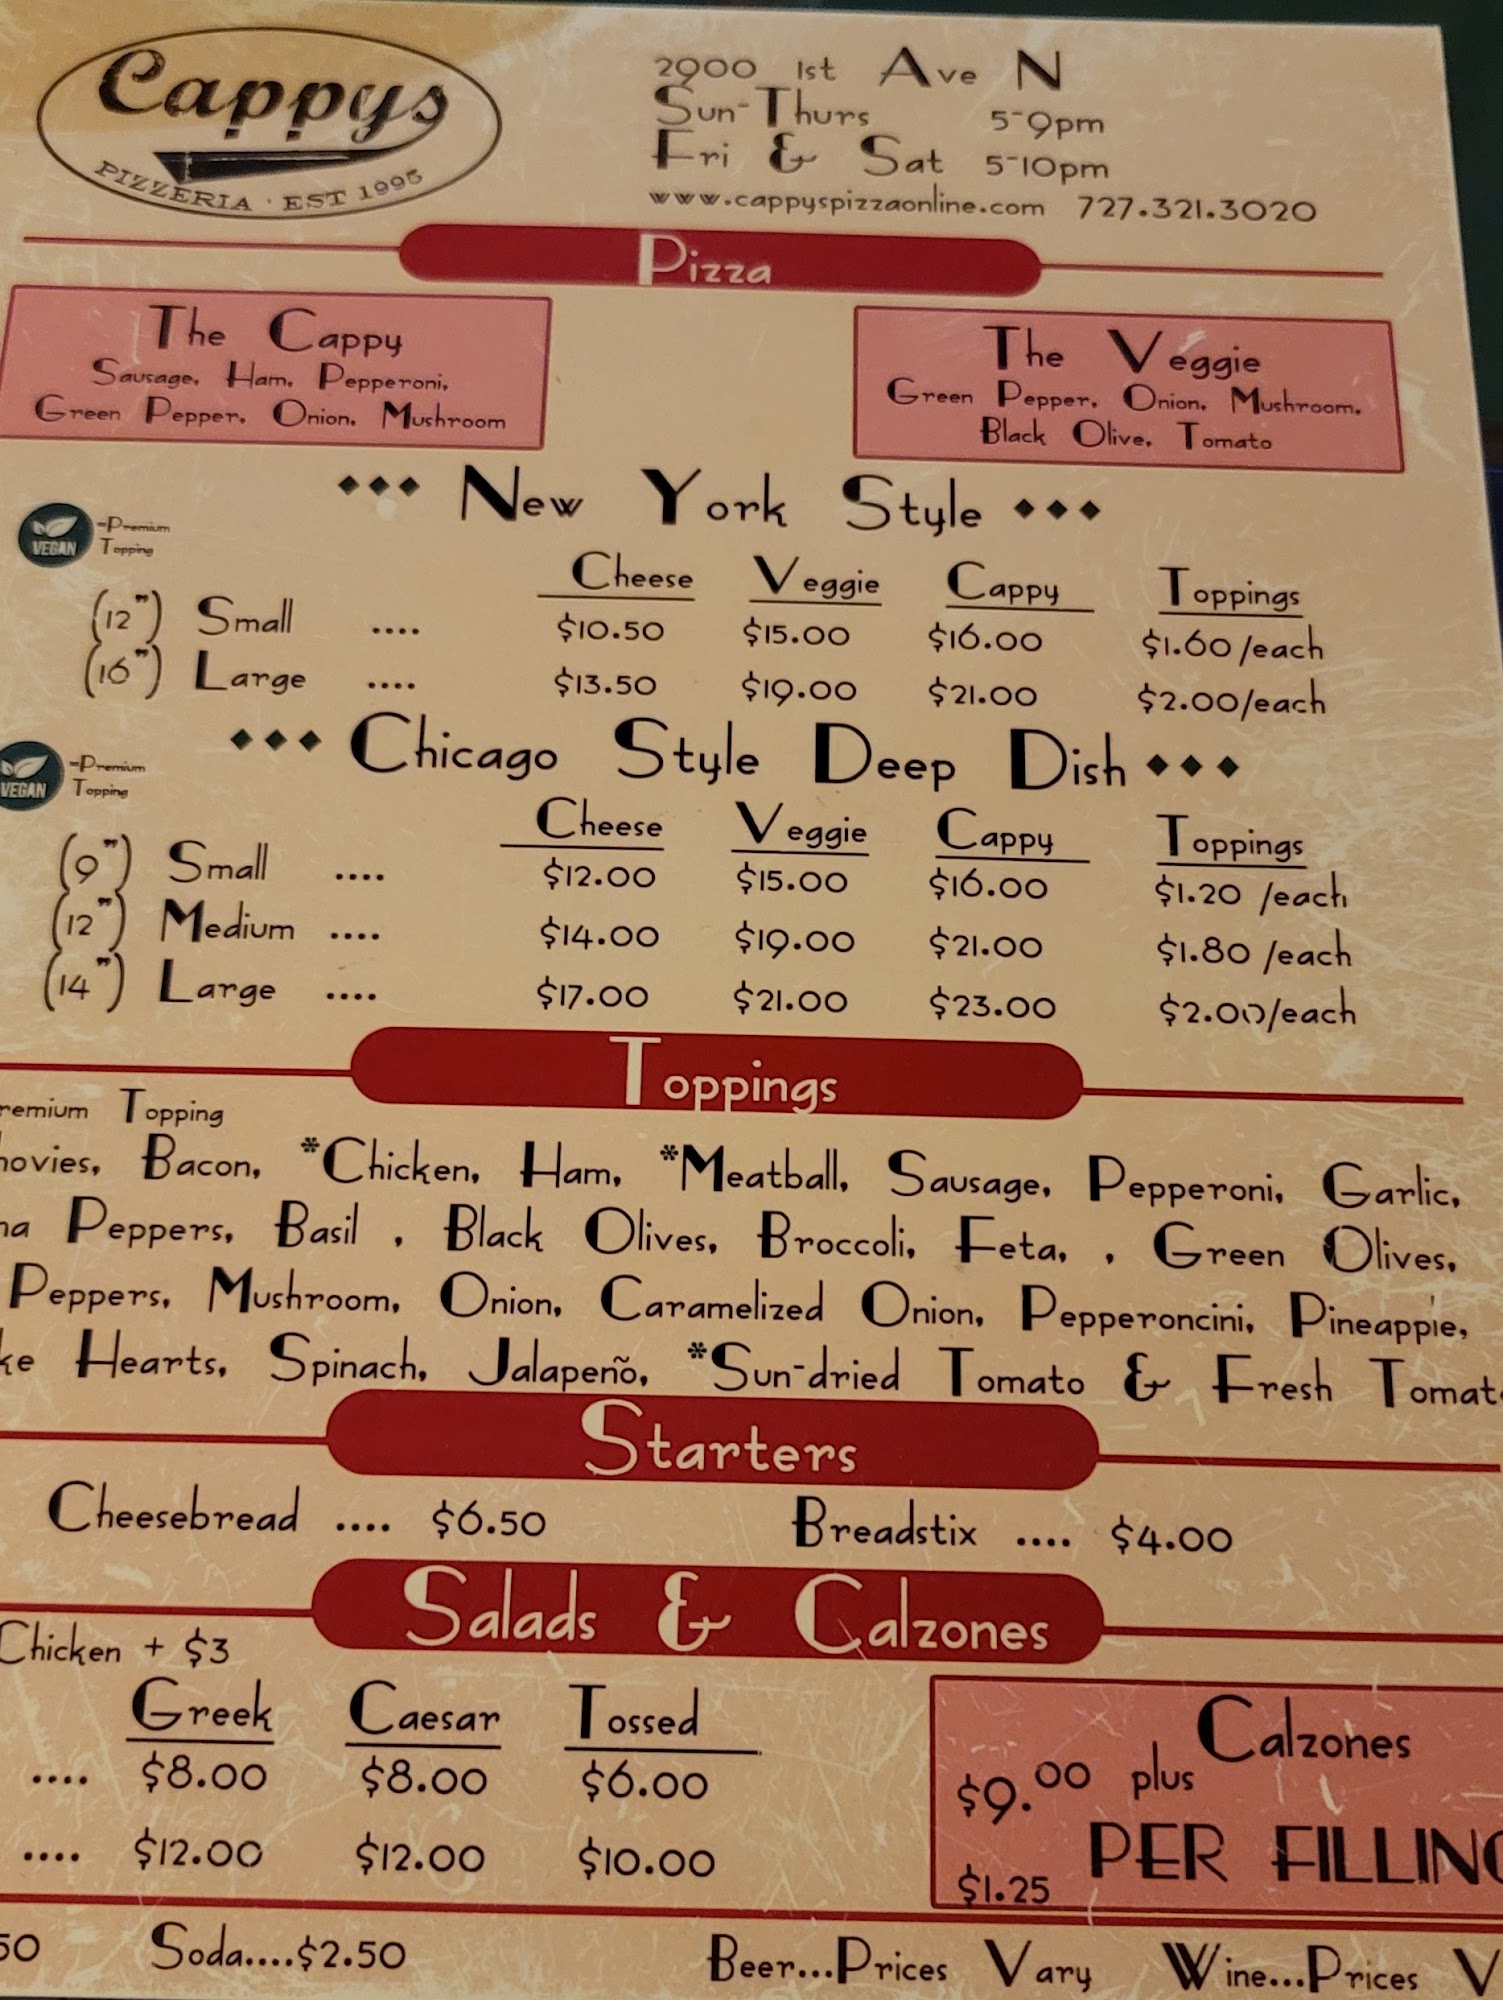 Cappys
PIZZERIA · EST 1995
2900 1st Ave N
Sun-Thurs 5-9pm
Fri & Sat 5-10pm
www.cappyspizzaonline.com 727.321.3020
Pizza
The Cappy
Sausage, Ham, Pepperoni,
Green Pepper, Onion, Mushroom
The Veggie
Green Pepper, Onion, Mushroom,
Black Olive, Tomato
New York Style
VEGAN =Premium
Topping
Cheese Veggie Cappy Toppings
(12") Small .... $10.50 $15.00 $16.00 $1.60 /each
(16") Large .... $13.50 $19.00 $21.00 $2.00/each
Chicago Style Deep Dish
VEGAN =Premium
Topping
Cheese Veggie Cappy Toppings
(9") Small .... $12.00 $15.00 $16.00 $1.20 /each
(12") Medium .... $14.00 $19.00 $21.00 $1.80 /each
(14") Large .... $17.00 $21.00 $23.00 $2.00/each
Toppings
remium Topping
hovies, Bacon, *Chicken, Ham, *Meatball, Sausage, Pepperoni, Garlic,
na Peppers, Basil , Black Olives, Broccoli, Feta, , Green Olives,
Peppers, Mushroom, Onion, Caramelized Onion, Pepperoncini, Pineapple,
ke Hearts, Spinach, Jalapeño, *Sun-dried Tomato & Fresh Tomat
Starters
Cheesebread .... $6.50 Breadstix .... $4.00
Salads & Calzones
Chicken + $3
Greek Caesar Tossed
.... $8.00 $8.00 $6.00
.... $12.00 $12.00 $10.00
Calzones
$9.00 plus
$1.25 PER FILLING
50 Soda....$2.50 Beer...Prices Vary Wine...Prices V